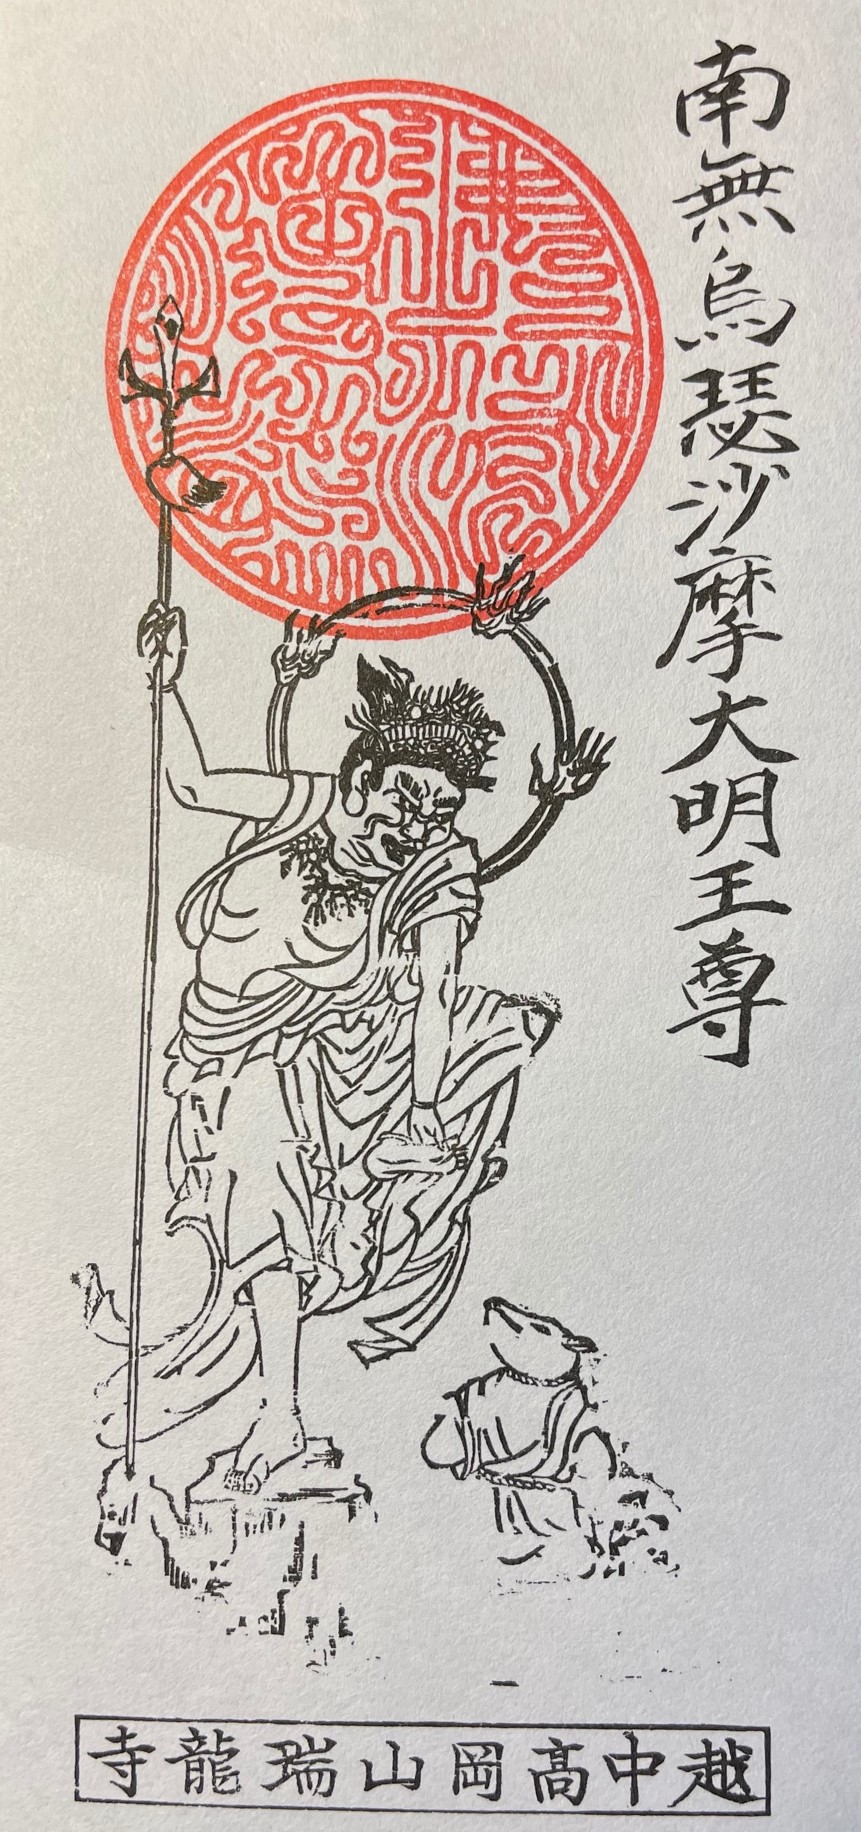 南無烏瑟沙摩大明王尊
越中高岡山瑞龍寺